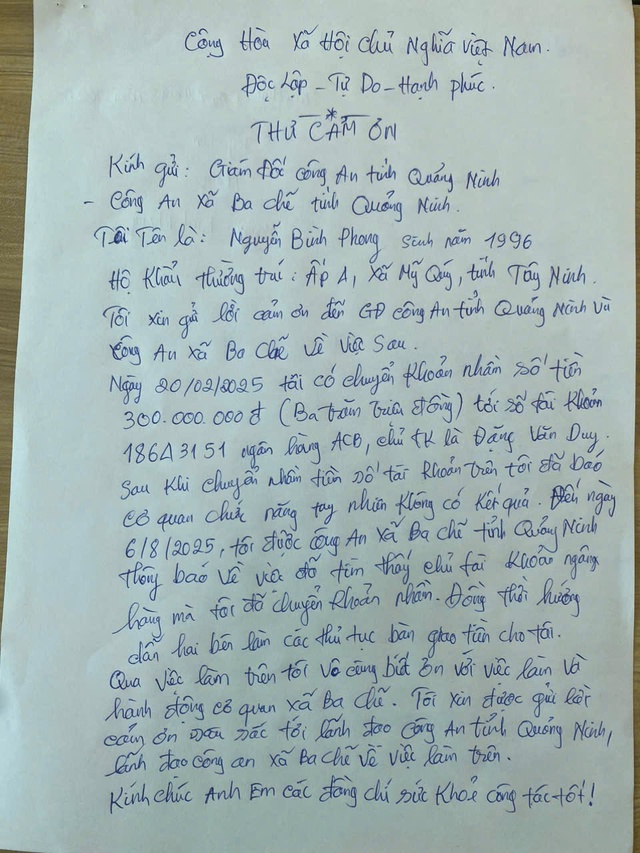 Cộng Hòa Xã Hội Chủ Nghĩa Việt Nam.
Độc Lập - Tự Do - Hạnh phúc.
THƯ CẢM ƠN
Kính gửi: Giám Đốc công An tỉnh Quảng Ninh
- Công An xã Ba chẽ tỉnh Quảng Ninh.
Tôi Tên là: Nguyễn Bình Phong sinh năm 1996
Hộ Khẩu thường trú: Ấp 1, xã Mỹ Quý, tỉnh Tây Ninh.
Tôi xin gửi lời cảm ơn đến GĐ công An tỉnh Quảng Ninh và
công An xã Ba chẽ về việc sau.
Ngày 20/02/2025 tôi có chuyển khoản nhầm số tiền
300.000.000đ (Ba trăm triệu đồng) tới số tài khoản
18643151 ngân hàng ACB, chủ tk là Đặng Văn Duy.
Sau khi chuyển nhầm tiền số tài khoản trên tôi đã báo
cơ quan chức năng tuy nhiên không có kết quả. Đến ngày
6/8/2025, tôi được công An xã Ba chẽ tỉnh Quảng Ninh
thông báo về việc đã tìm thấy chủ tài khoản ngân
hàng mà tôi đã chuyển khoản nhầm. Đồng thời hướng
dẫn hai bên làm các thủ tục bàn giao tiền cho tôi.
Qua việc làm trên tôi vô cùng biết ơn với việc làm và
hành động cơ quan xã Ba chẽ. Tôi xin được gửi lời
cảm ơn sâu sắc tới lãnh đạo công An tỉnh Quảng Ninh,
lãnh đạo công an xã Ba chẽ về việc làm trên.
Kính chúc Anh Em các đồng chí sức khoẻ công tác tốt!